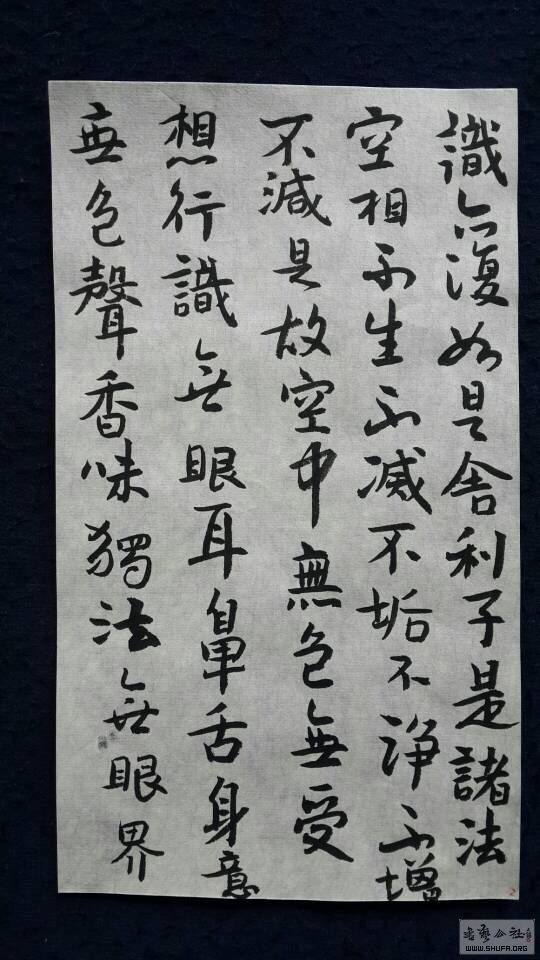 識亦復如是舍利子是諸法
空相不生不滅不垢不淨不增
不減是故空中無色無受
想行識無眼耳鼻舌身意
無色聲香味獨法無眼界
书艺公社
WWW.SHUFA.ORG